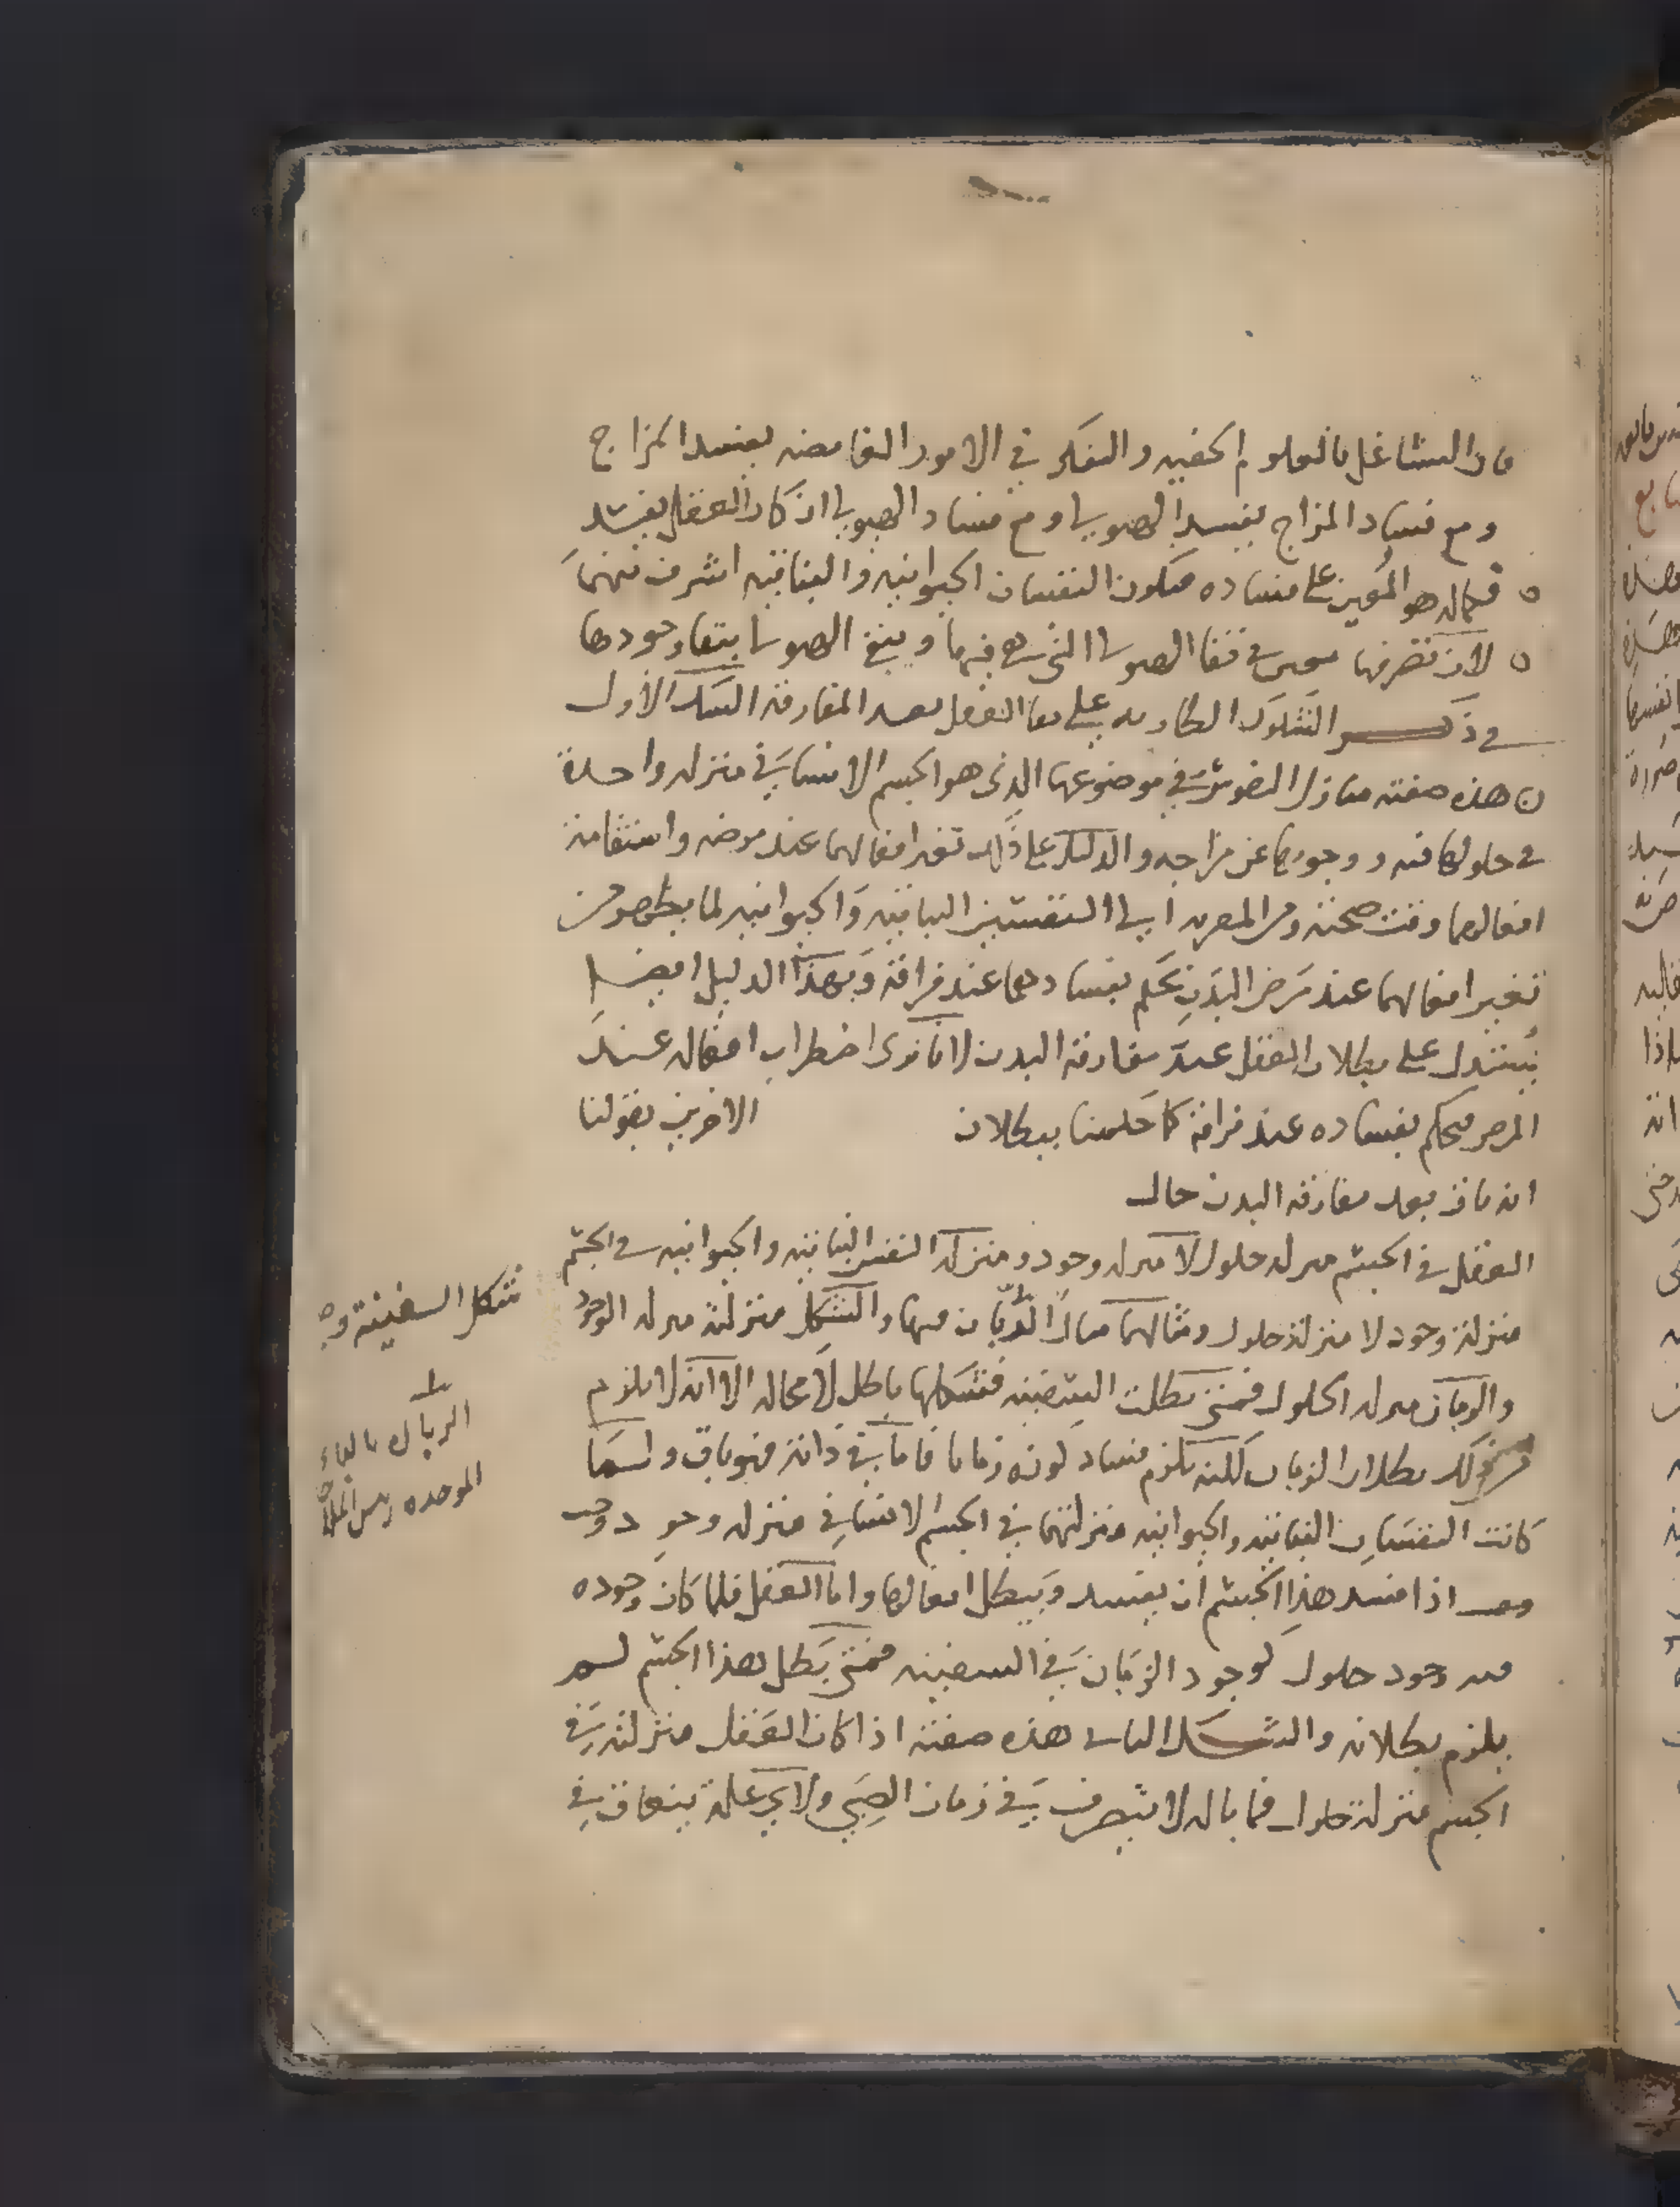 فان التشاغل بالعلوم الخفيه والتفكر في الامور الغامضه يفسد المزاج
ومع فساد المزاج يفسد الهيولى ومع فساد الهيولى ان كان العقل يفسد
فكماله هو المعين على فساده فتكون النفسان الحيوانيه والنباتيه اشرف منهما
لان تصرفها في بقا الهيولى التي هي فيها ويتبع الهيولى بقا وجودها
في ذكر الشكوك الطاريه على بقا العقل بعد المفارقه الشك الاول
ان هذه صفته منازل النفوس في موضوعها الذي هو الجسم الانساني منزله واحدة
في حلولها فيه ووجودها عن مزاجه والدليل على ذلك تغير افعالهما عند مرضه واستقامة
افعالهما وقت صحته النفستين النباتيه والحيوانيه لما يظهر من
تغير افعالهما عند مرض البدن نحكم بفسادهما عند فراقه وبهذا الدليل ايضا
يستدل على بطلان العقل عند مفارقة البدن لانا نرى اضطراب افعاله عند
المرض فيحكم بفساده عند فراقه كما حكمنا ببطلان الاخرين بقولنا
انه باق بعد مفارقه البدن حال
العقل في الجسم منزله حلول لا منزله وجود ومنزله النفس النباتيه والحيوانيه في الجسم
منزلة وجود لا منزلة حلول ومثالهما مثال الربان منها والشكل منزلته منزله الوجود
والربان منزله الحلول فمتى بطلت السفينه فشكلها باطل لا محاله الا انه لا يلزم
من ذلك بطلان الربان لكنه يلزم فساد كونه ربانا فاما في ذاته فهو باق ولما
كانت النفسان النباتيه والحيوانيه منزلتهما في الجسم الانساني منزله وجود وجب
اذا فسد هذا الجسم ان يفسد ويبطل افعالهما واما العقل فلما كان وجوده
فيه وجود حلول كوجود الربان في السفينه فمتى بطل هذا الجسم لم
يلزم بطلانه والشك الثاني هذه صفته اذا كان العقل منزلته في
الجسم منزلة حلول فما باله لا يتصرف في زمان الصبى ولاي علة ينعاق في
شكل السفينة
الربان بالباء
الموحده